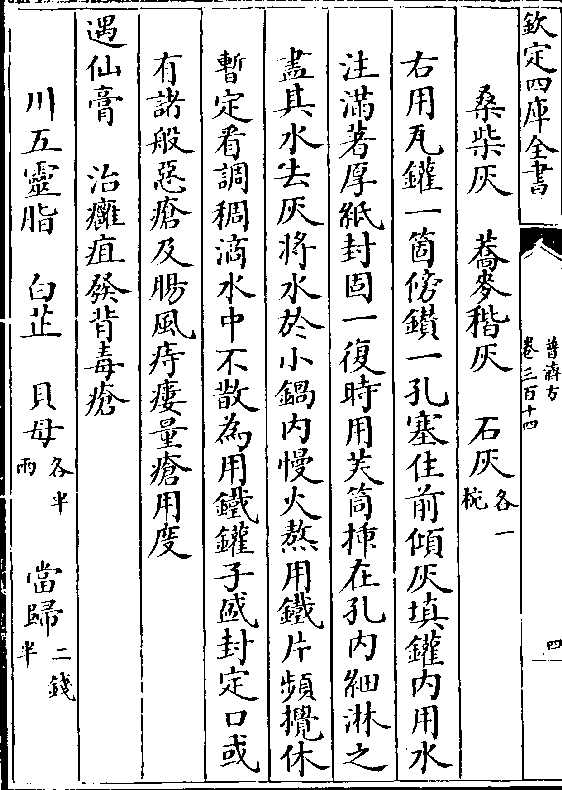 欽定四庫全書
普濟方
卷三百十四
四
桑柴灰 蕎麥稭灰 石灰各一椀
右用瓦罐一箇傍鑽一孔塞住前傾灰填罐内用水
注滿著厚紙封固一復時用芙筒揷在孔内細淋之
盡其水去灰將水於小鍋内慢火熬用鐵片頻攪休
暫定看調稠滴水中不散為用鐵罐子盛封定口或
有諸般惡瘡及腸風痔瘻量瘡用度
遇仙膏 治癰疽發背毒瘡
川五靈脂 白芷 貝母各半兩 當歸二錢半